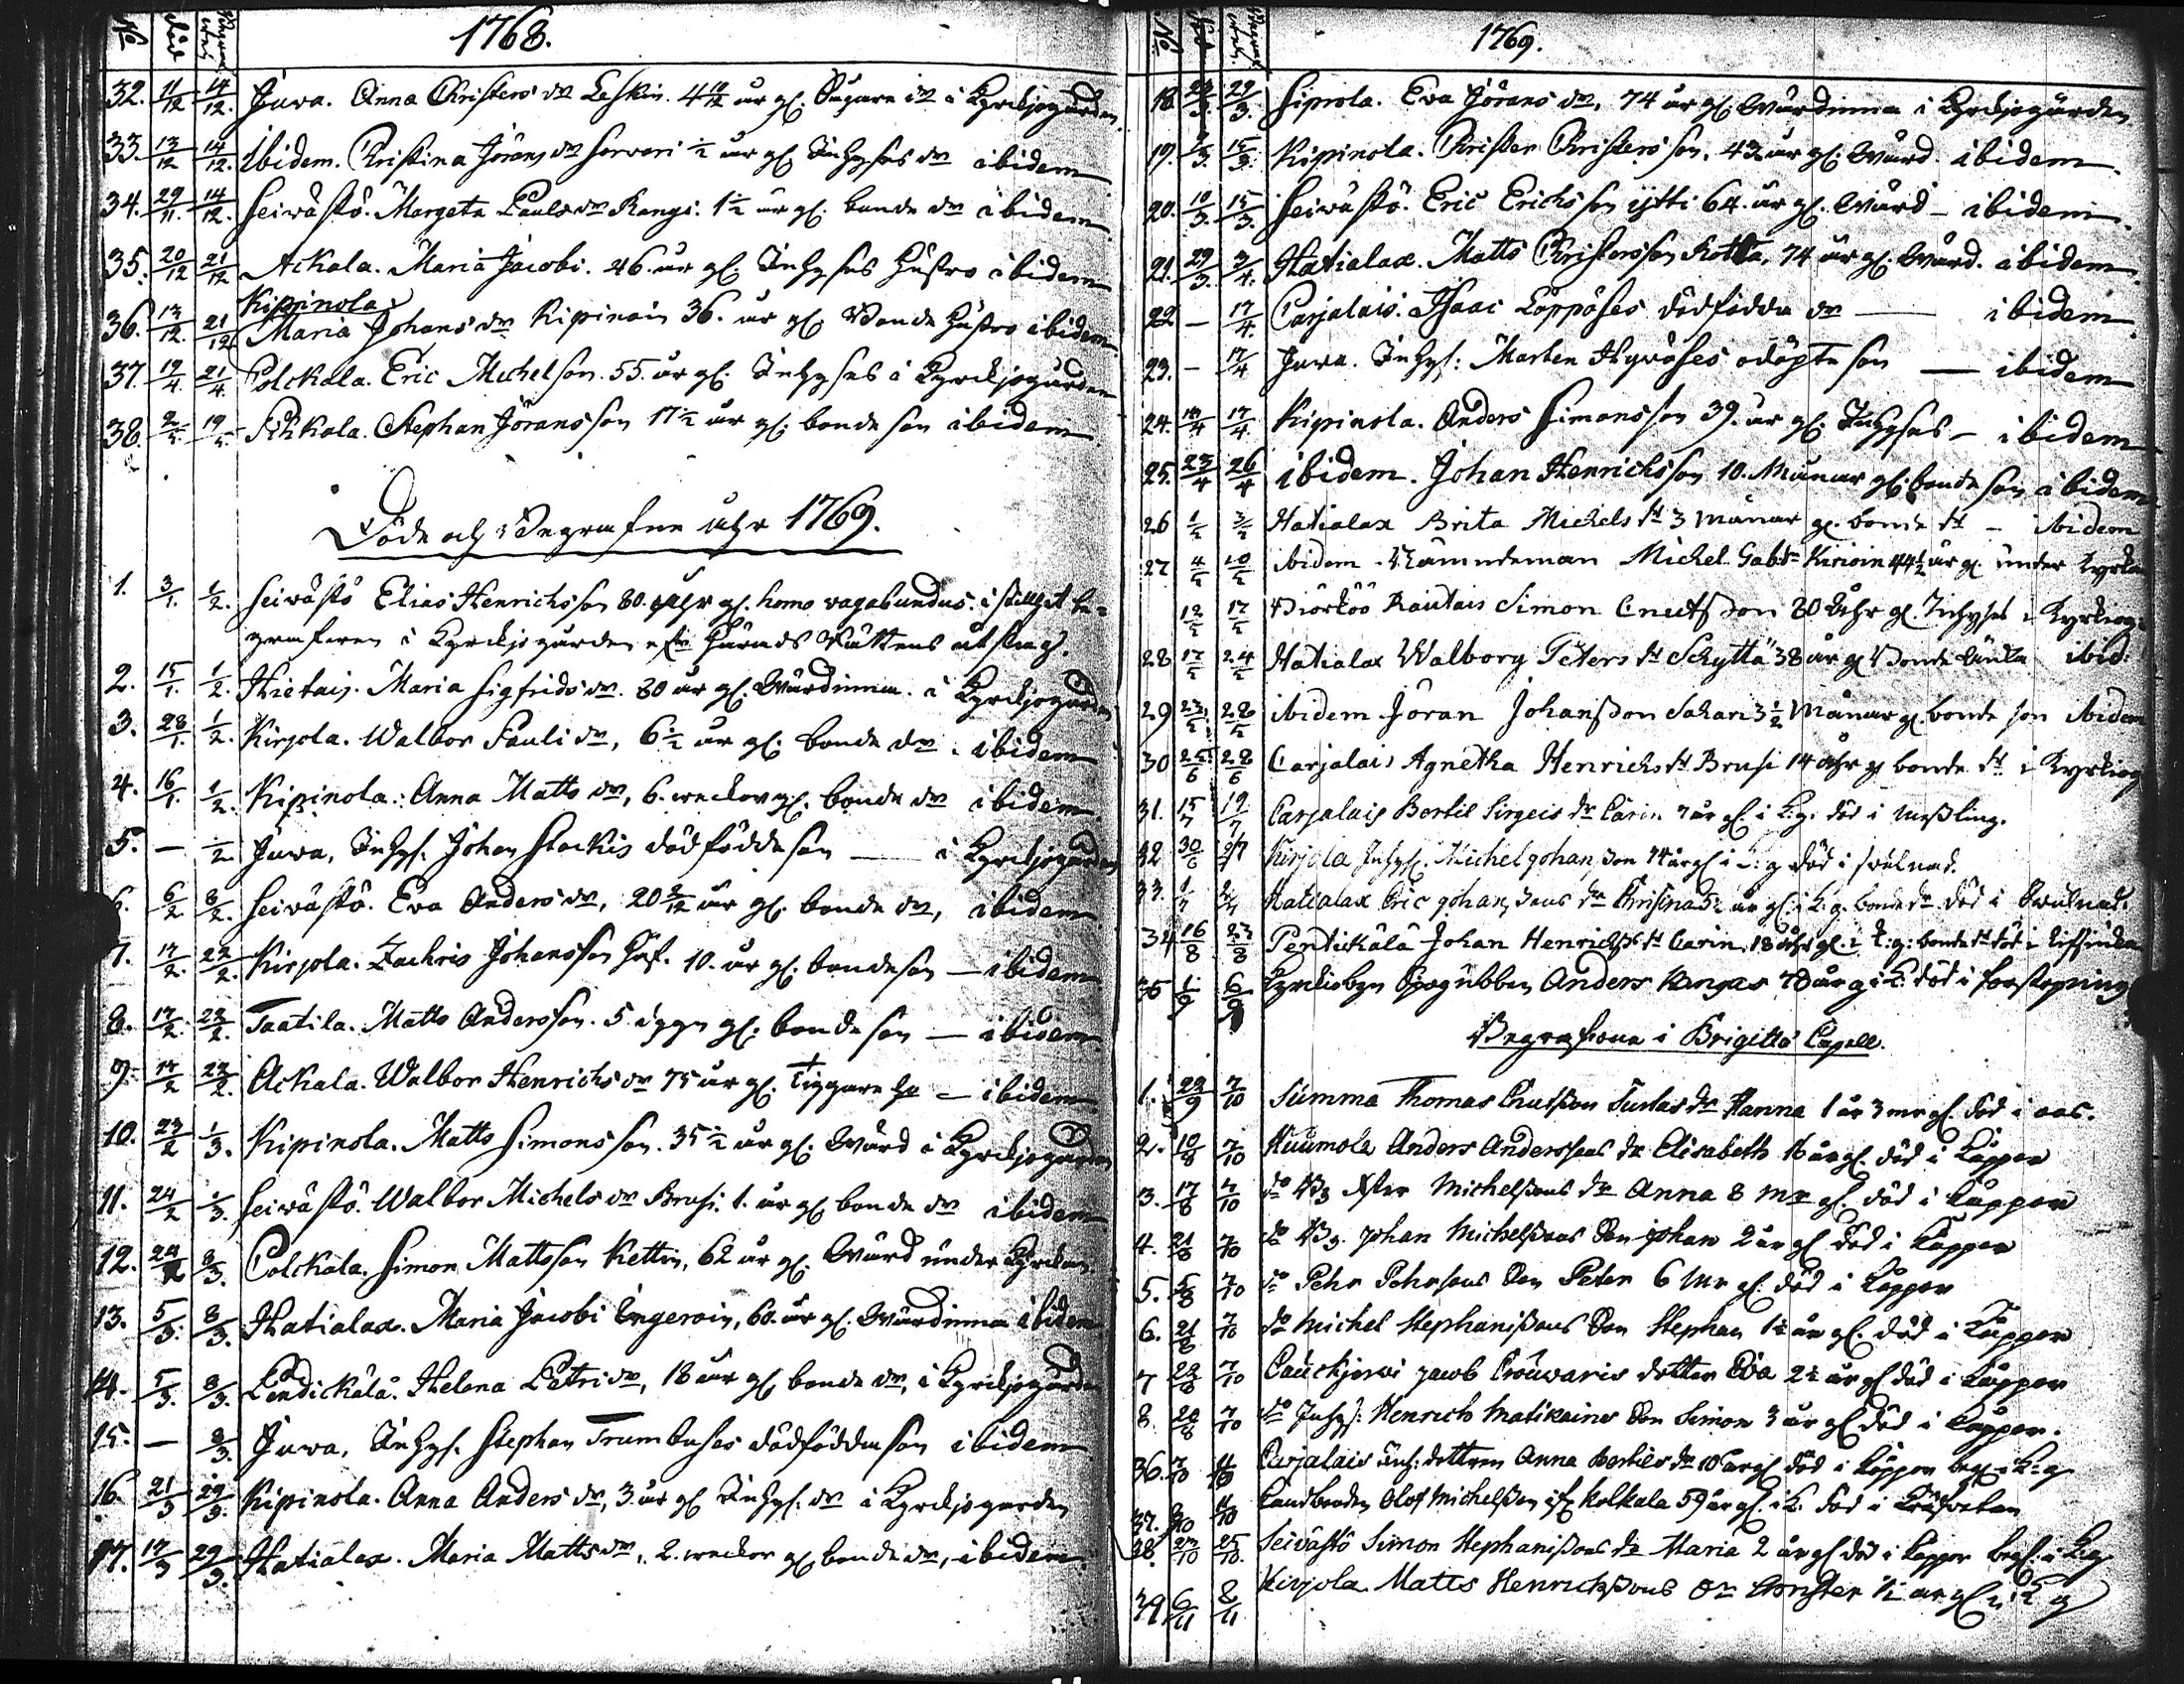 No död Begrafwen 1768.
32. 11/12 14/12. Juwa. Anna Christers dr Leskin. 4 år gl. i Kyrckjogården.
33. 13/12 14/12. Ibidem. Christina Jörans dr Sorvari ½ år gl. Inhyses dr ibidem
34. 29/11. 14/12. Seiwästö. Margeta Pauls dr Rangi. 1½ år gl. bonde dr ibidem
35. 20/12 21/12 Ackala. Maria Jacobi. 46. år gl. Inhyses hustro ibidem
Kippinola
36. 13/12. 21/12 Maria Johans dr Kipinoin 36. år gl. Bonde hustro ibidem
37. 19/4 21/4. Colckala. Eric Michelson. 55. år gl. Inhyses i Kyrckjogården
38. Stephan Jöransson 17½ år gl. bonde son ibidem
Döde och Begrafne åhr 1769.
1. 3/1. 1/2. Seiwästö Elias Henrichsson 80. åhr gl. homo vagabundus. i stillhet be-
grafwen i Kyrckjogården efter Härads Rättens utslag.
2. 15/1. 1/2. Hietais. Maria Sigfrids dr. 80 år gl. Wärdinna. i Kyrckjogården
3. 28/1. 1/2. Kirjola. Walbor Pauli dr, 6½ år gl. bonde dr ibidem
4. 16/1. 1/2. Kipinola. Anna Matts dr, 6. weckor gl. bonde dr ibidem
5. — 1/2. Juwa, Inhys. Johan Slackis dödfödde son — i Kyrckjogården
6. 6/2. 8/2. Seiwästö. Eva Anders dr, 20 år gl. bonde dr, ibidem
7. 17/2. 22/2. Kirjola. Zachris Johansson 10. år gl. bonde son — ibidem
8. 17/2. 22/2. Taatila. Matts Andersson. 5 dygn gl. bonde son — ibidem
9. 17/2 22/2. Ackala. Walbor Henrichs dr 75 år gl. Tiggare — ibidem
10. 23/2 1/3. Kipinola. Matts Simonsson. 35½ år gl. Wärd i Kyrckjogården
11. 24/2 1/3. Seiwästö. Walbor Michels dr Brusi. 1. år gl. bonde dr ibidem
12. 24/2 8/3. Colckala. Simon Mattsson Kettin, 62 år gl. Wärd under Kyrckan
13. 5/3. 8/3. Hatialax. Maria Jacobi Ingeroin, 60. år gl. Wärdinna ibidem
14. 5/3. 8/3. Pendickälä. Helena Petri dr, 18 år gl. bonde dr, i Kyrckjogården
15. — 8/3. Juwa, Inhys. Stephan Trumbuses dödfödde son ibidem
16. 21/3 29/3. Kipinola. Anna Anders dr, 3. år gl. Inhys. dr i Kyrckjogården
17. 17/3 29/3. Hatialax. Maria Matts dr, 2. weckor gl. bonde dr, ibidem
No död Begrafwen 1769.
18. 29/3. Sipiola. Eva Jörans dr, 74 år gl. Wärdinna i Kyrckjogården
19. 15/3. Kipinola. Christer Christersson, 43 år gl. Wärd. ibidem
20. 10/3. 15/3. Seiwästö. Eric Erichsson ijtti 64. år gl. Wärd — ibidem
21. 29/3. 3/4. Hatialax. Matts Christersson Kotta, 74 år gl. Wärd. ibidem
22 — 17/4. Carjalais. Isaac Loppöses dödfödda dr — ibidem
23. — 17/4 Juwa. Inhys: Marten Hywöses odöpte son — ibidem
24. 17/4. Kipinola. Anders Simonsson 39. år gl. Inhyses — ibidem
25. 23/4 26/4 ibidem. Johan Henrichsson 10. Månar gl. bonde son ibidem
26 Hatialax Brita Michels dr 3 Månar gl. bonde dr — ibidem
27 ibidem Nämndeman Michel Gabr: Kirioin 44½ år gl under Kyrkan
Biörköö Rautais Simon Cnutsson 80 åhr gl. Inhyses i Kyrkiog:
28 Hatialax Walborg Peters dr Schyttä 38 år gl Bonde Änka ibid:
29 ibidem Jöran Johansson Sakari 3½ Månar gl. bonde son ibidem
30 25/6 28/6 Carjalais Agnetha Henrichs dr Brusi 14 åhr gl bonde dr i Kyrkiog
31. 15/7 19/7 Carjalais Bertil Sirgeis dr Carin 7 år gl. i K:g. död i meßling.
32 30/6 2/7 Kirjola Inhys. Michel Johansson 74 år gl i K:g död i swulnad.
33. 1/7 2/7 Hatialax Eric Johanssons dr Christina år gl: i K:g. bonde dr död i Swulnad.
34 16/8 23/8 Pentikälä Johan Henrichs dr Carin 18 åhr gl. i K:g: bonde dr död i
35 1/9 6/9 Kyrkiobyn Anders Kangas 78 år g i K: död i förstopning
Begrafwne i Brigittä Capell.
1. 22/9 7/10 Summa Thomas Cnutsson Turlas dr Hanna 1 år 3 mr gl. död i
2. 10/8 7/10 Huumola Anders Anderssons dr Elisabeth 16 år gl. död i Koppor
3. 17/8 7/10 do Michelssons dr Anna 8 Mr gl. död i Koppor
4. 21/8 7/10 do Johan Michelssons Son Johan 2 år gl död i Koppor
5. 5/8 7/10 do Pehr Pehrsons Son Peter 6 Mr gl. död i Koppor
6. 21/8 7/10 do Michel Stephanssons Son Stephan 1½ år gl. död i Koppor
7 22/8 7/10 Cauckjerwi Jacob Crouwaris dotter Eva 2½ år gl död i Koppor
8. 20/8 7/10 do Inhys: Henrich Matikains Son Simon 3 år gl död i Koppor.
36. 7/10 Carjalais dottren Anna Bertils dr 10 år gl död i Koppor begr i K:g
37. Landbonden Olof Michelsson ifr. Kolkala 59 år gl. i K. död i
38. 23/10 25/10. Seiwästö Simon Stephanssons dr Maria 2 år gl död i Koppor begr. i K:g
39 6/11 8/11 Kirjola Matts Henrickssons Son Christer ½ år gl i K g